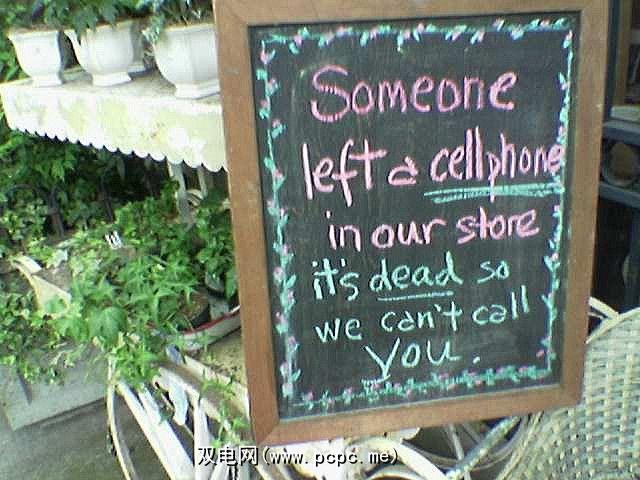 Someone
left a cellphone
in our store
it's dead so
we can't call
you.
双电网(www.pcpc.me)